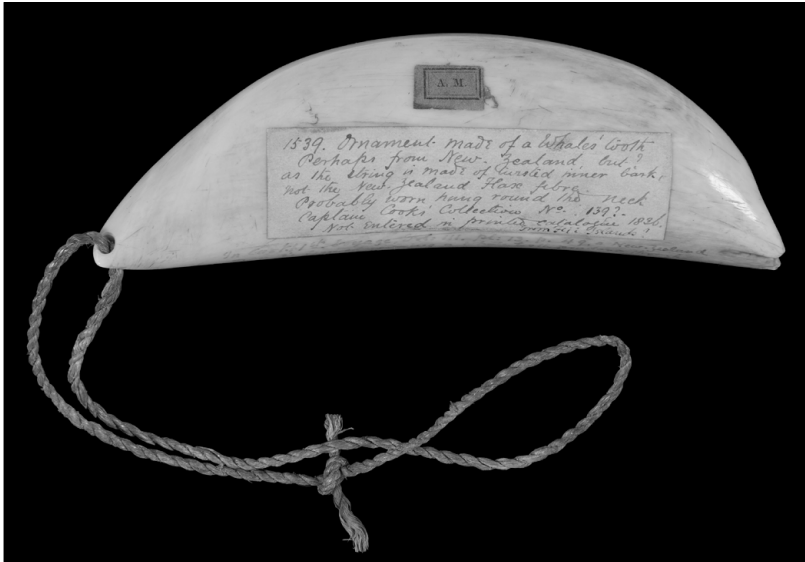 A. M.
1539. Ornament made of a Whales' tooth
Perhaps from New. Zealand, but?
as the string is made of twisted inner bark,
not the New. Zealand Flax fibre.
Probably worn, hung round the neck
Captain Cooks' Collection. No. 139?.
Not entered in printed catalogue 1836.